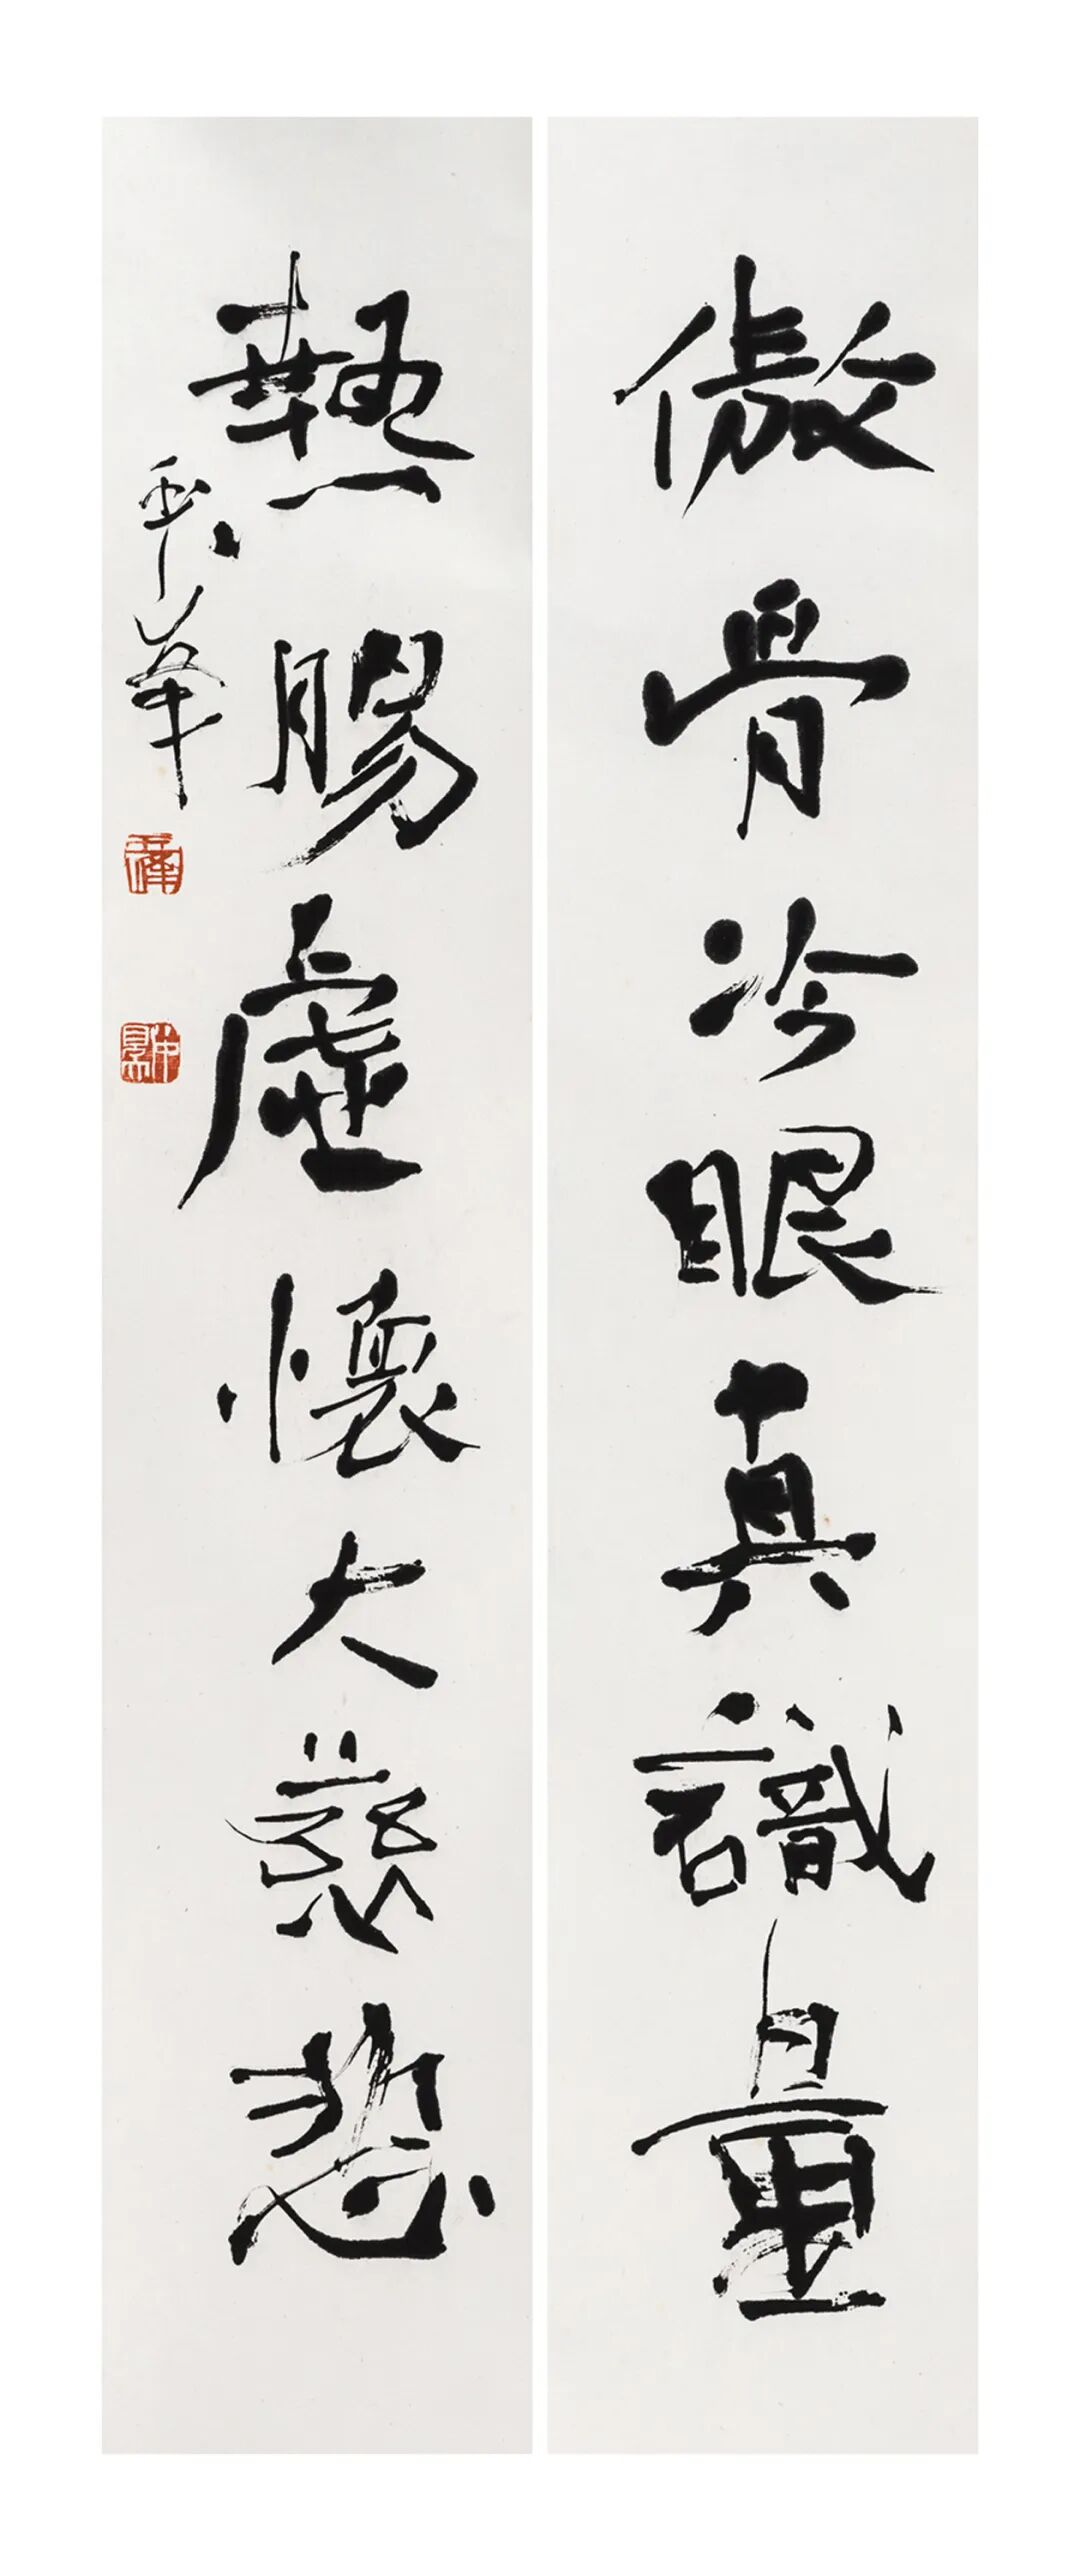 傲骨冷眼真識量
熱腸虛懷大慈悲